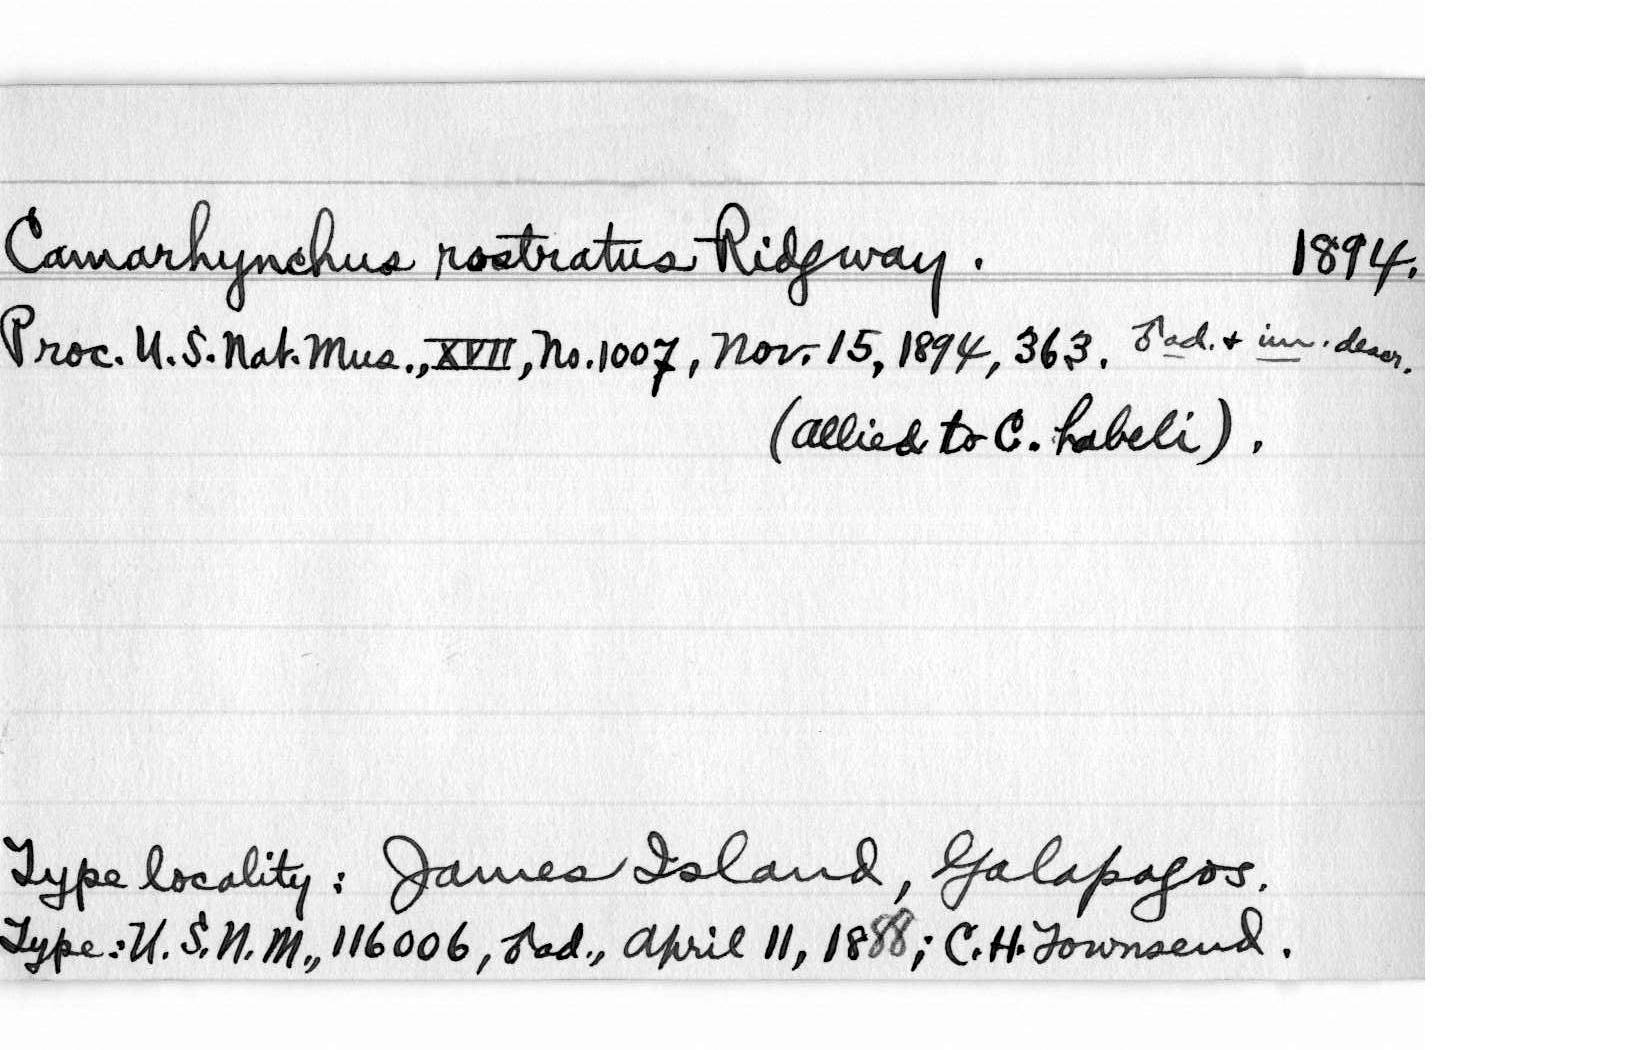 Camarhynchus rostratus Ridgway. 1894.
Proc. U.S. Nat. Mus., XVII, No. 1007, Nov. 15, 1894, 363. ♂ ad. & im. descr.
(allied to C. habeli).
Type locality: James Island, Galapagos.
Type: U.S.N.M., 116006, ♂ ad., April 11, 1888; C.H. Townsend.